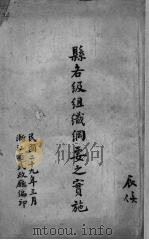 縣各級組織綱要之實施
民國二十九年三月
浙江省民政廳編印